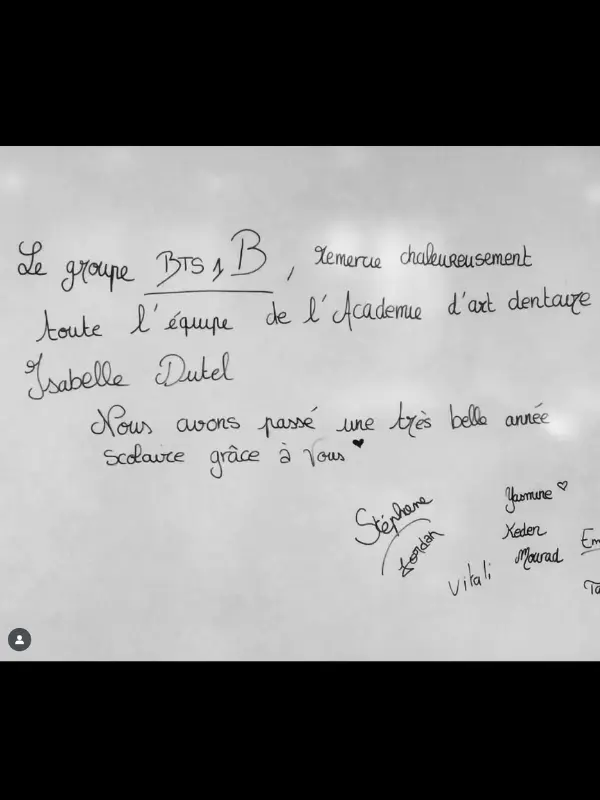 Le groupe BTS 1 B, remercie chaleureusement
toute l'équipe de l'Academie d'art dentaire
Isabelle Dutel
Nous avons passé une très belle année
scolaire grâce à vous ♥
Stéphane
Jordan
Vitali
Yasmine ♡
Keden
Mourad
Em
Ta